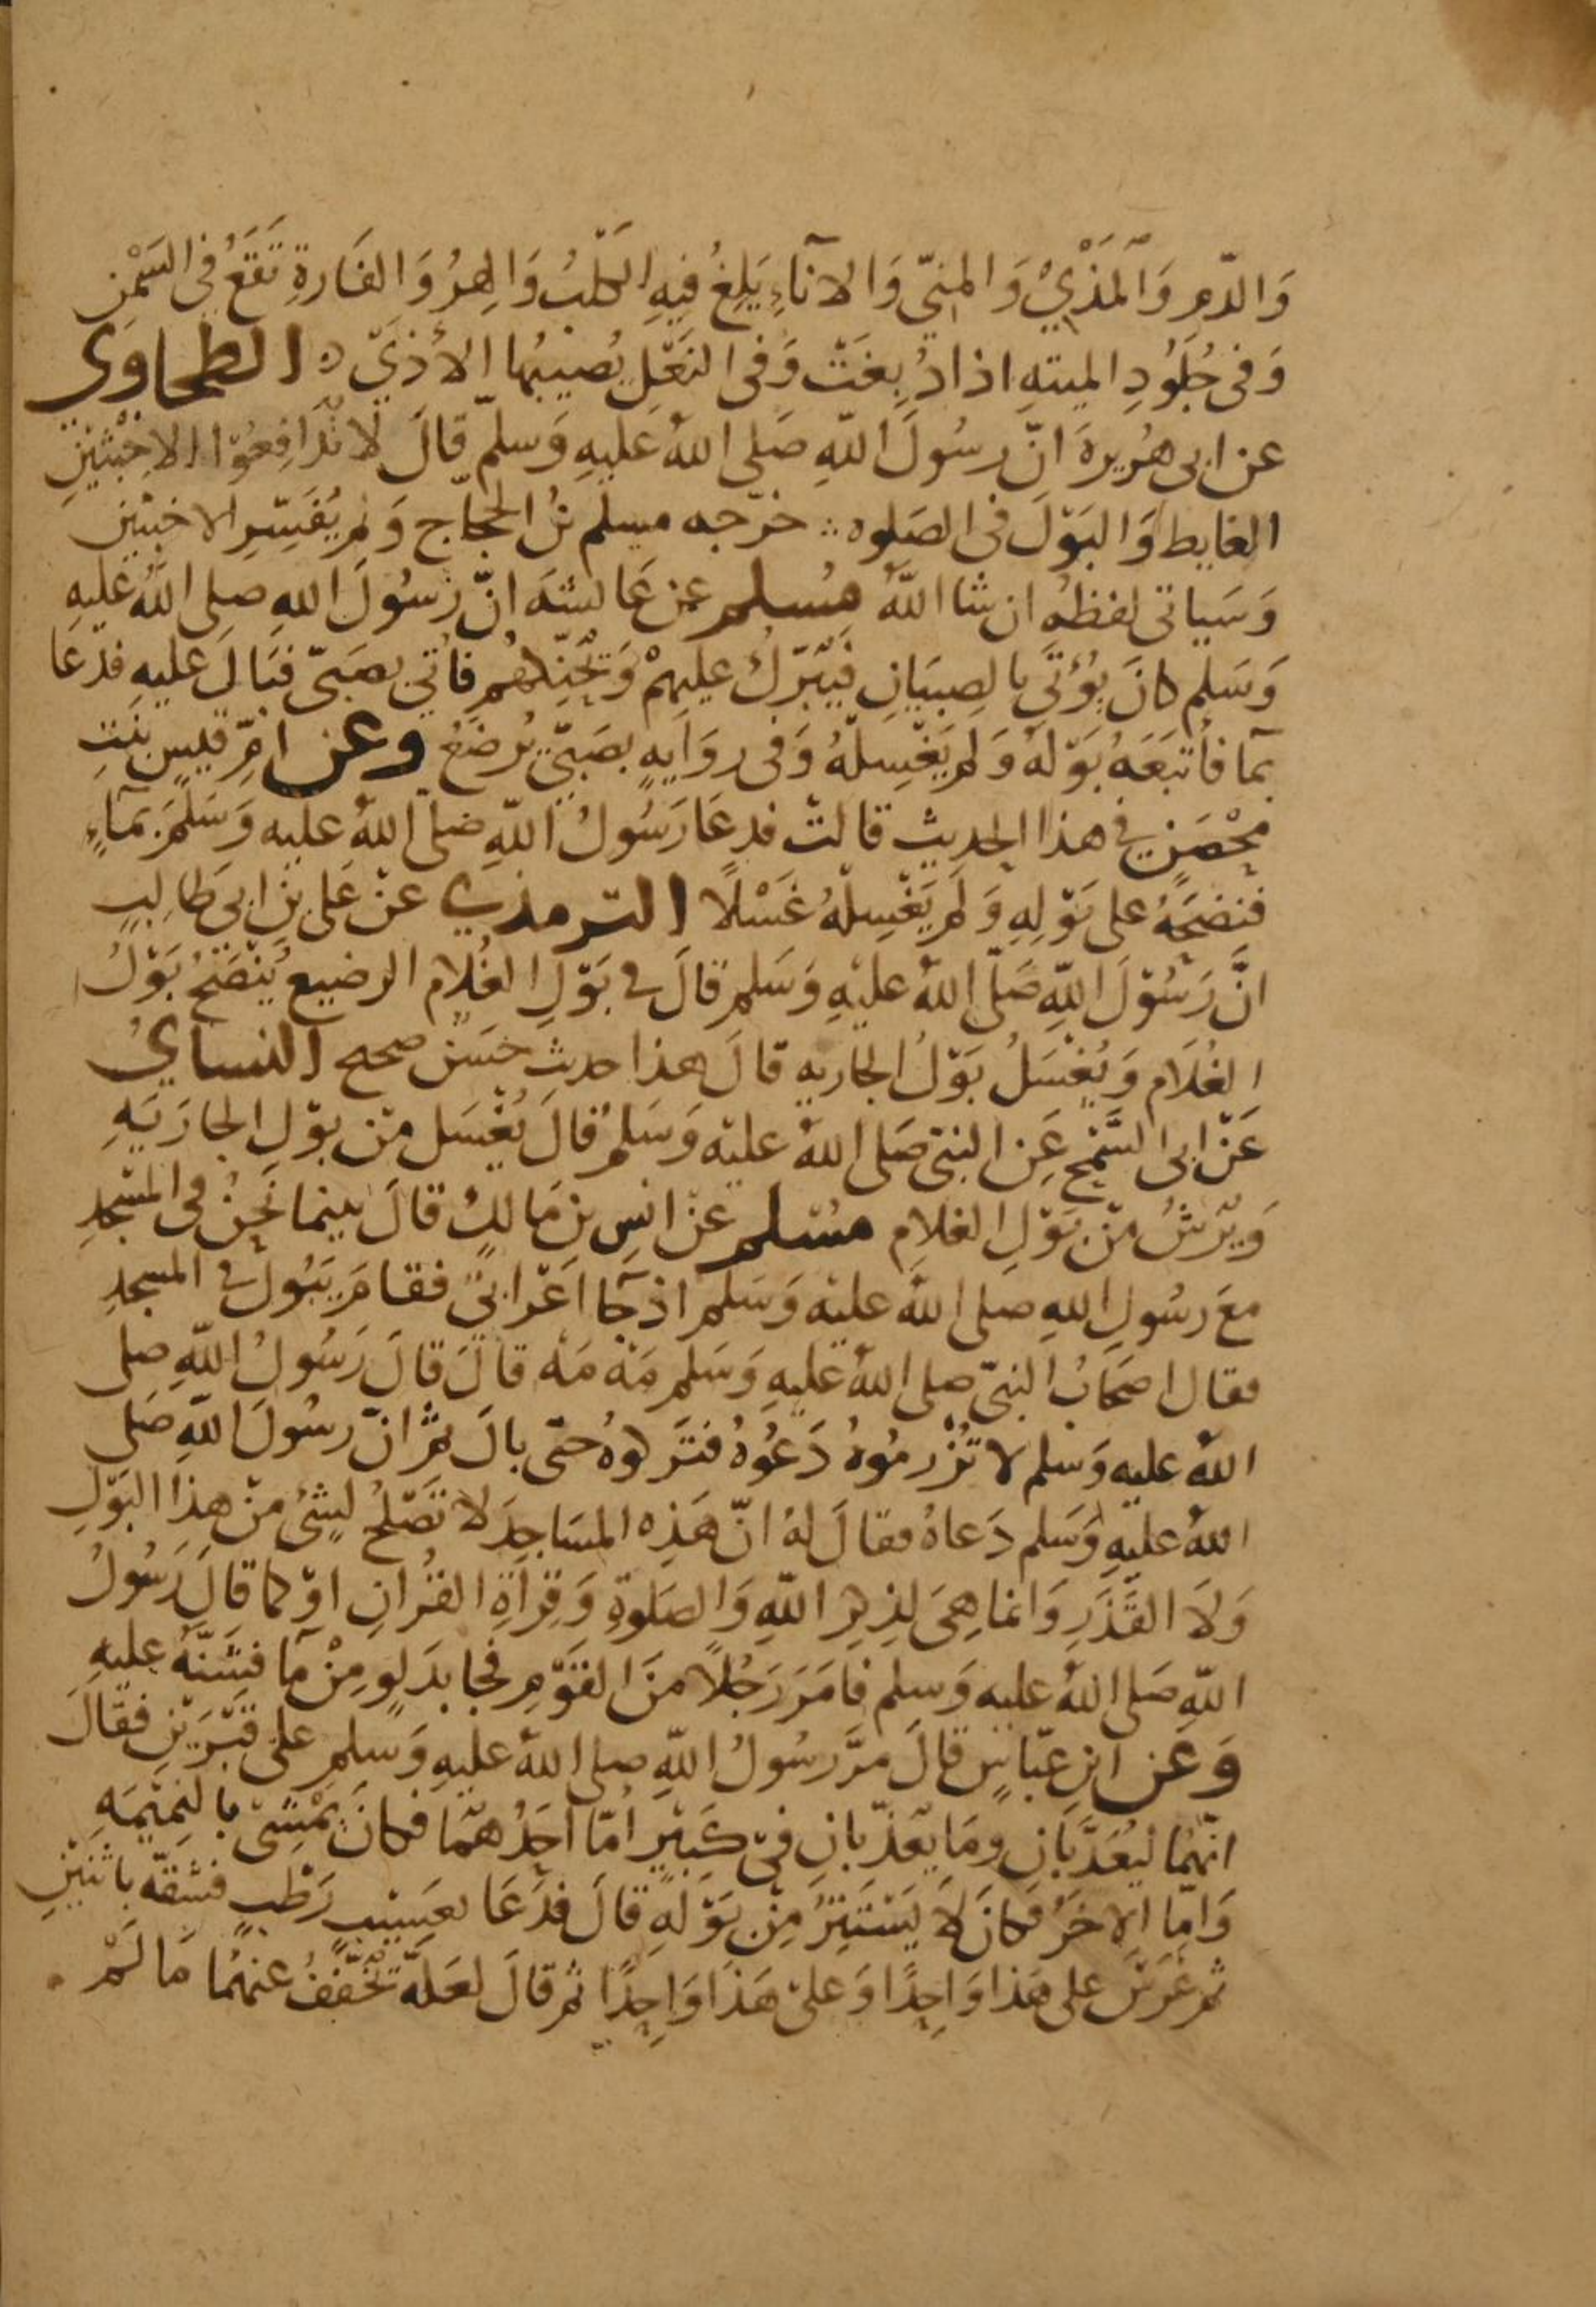 وَالدّمِ وَالمَذْيُ وَالمنيّ وَالانآءِ يَلِغُ فيهِ الكَلْبُ وَالهِرُ وَالفَارةِ تَقَعُ فِي السَمْنِ
وَفى جُلُودِ الميتهِ اذا دُبغَتْ وَفى النَعْلِ يُصيبُها الأذيّ ه الطحاوي
عن ابى هُريرةَ انّ رسُولَ اللّهِ صَلى اللهُ عَليهِ وَسلّم قالَ لا تُدَافِعُوا الاخبَثَيْنِ
الغايط وَالبَوْلَ فى الصَلوه ؞ خرّجه مسلم بنُ الحجّاج وَلم يُفَسّرِ الاخبثينِ
وَسَياتى لفظهُ ان شا اللّهُ مُسلم عن عَايشَهَ انّ رَسُولَ اللهِ صلى اللّهُ عَليهِ
وَسَلم كانَ يُؤتَى بالصِبيَانِ فَيُبَرّكُ عليهمْ وَيُحَنّكهُم فاُتي بصَبىّ فبَالَ عليهِ فدَعَا
بمآ فأتبَعَهُ بَوْلهُ وَلم يَغْسِلهُ وَفى روَايهٍ بصَبيّ يُرضَعُ وعن امّ قيسٍ بنْتِ
مِحْصَنٍ في هذا الحديث قالتْ فدعَا رَسُولُ اللّهِ صلى اللهُ عليه وَسَلّمَ بمآءٍ
فنضحَهُ على بَوْلِهِ وَلَم يَغْسِلهُ غَسْلًا الترمذي عنْ عَلى بنِ ابى طالِبٍ
انَّ رَسُوْلَ اللّهِ صَلّى اللهُ عليْهِ وَسَلم قالَ في بَوْلِ الغُلام الرضيع يُنْضَحُ بَوْلُ
الغُلَام وَيُغْسَلُ بَوْلُ الجاريه قالَ هذا حديث حَسَن صحيح النسايُ
عَنْ ابى السَّمْحِ عَنِ النبيّ صَلى اللهُ عليْه وَسَلم قالَ يُغْسَل مِنْ بوْلِ الجاريَهِ
وَيُرَشُ مِنْ بَوْلِ الغلامِ مُسْلم عنْ انسِ بنِ مَالكٍ قالَ بينما نَحنُ فى المسْجدِ
معَ رسُولِ اللهِ صَلى اللهُ عليْه وَسَلم اذ جَآ اعْرابيّ فقامَ يَبُولُ في المسجدِ
فقال اصحَابُ النبيّ صلى اللهُ عليهِ وَسَلم مَهْ مَهْ قالَ قالَ رَسُولُ اللّهِ صلى
اللهُ عليهِ وَسلم لا تُزْرمُوهُ دَعُوهُ فتَركوهُ حتى بالَ ثمّ انّ رسُولَ اللّهِ صَلى
اللهُ عليهِ وَسَلم دَعاهُ فقالَ لهُ انّ هَذِه المسَاجِدَ لا تَصْلحُ لشئ مِنْ هذا البَوْلِ
وَلا القَذَرِ وَانما هِيَ لذِكرِ اللّهِ وَالصَلوةِ وَقِرأةِ القُرانِ اوْ كما قالَ رَسُولُ
اللّهِ صَلى اللهُ عليه وَسلم فامَرَ رَجُلًا منَ القَوْم فجا بدَلوٍ مِنْ مآ فشَنّهُ عليهِ
وَعَن ابنِ عبّاسٍ قالَ مرَّ رسُولُ اللّهِ صلى اللهُ عليهِ وَسلم على قَبْرَيْنِ فقالَ
انّهمُا ليُعَذّبانِ ومَا يُعَذّبانِ فى كَبيْرٍ امّا احَدُهمَا فكانَ يَمْشى بالنميْمَهِ
وَامّا الاخرُ فكانَ لا يَسْتَتِرُ مِنْ بَوْلهِ قالَ فدَعَا بعَسِيْبٍ رَطْبٍ فشقّه باثنَيْنِ
ثم غرَسَ على هَذا وَاحِدًا وَعلى هَذا وَاحِدًا ثم قالَ لعَلّهُ يُخفَّفُ عنهمُا مَا لَمْ